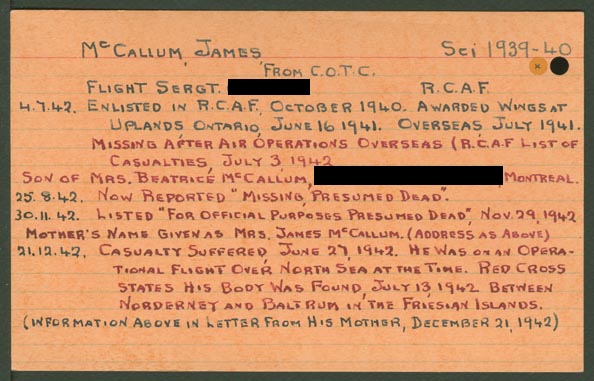 McCALLUM, JAMES Sci 1939-40
FROM C.O.T.C.
FLIGHT SERGT. R.C.A.F.
4.7.42. ENLISTED IN R.C.A.F, OCTOBER 1940. AWARDED WINGS AT
UPLANDS ONTARIO, JUNE 16 1941. OVERSEAS, JULY 1941.
MISSING AFTER AIR OPERATIONS OVERSEAS (R.C.A.F LIST OF
CASUALTIES, JULY 3, 1942
SON OF MRS. BEATRICE McCALLUM, MONTREAL.
25.8.42. NOW REPORTED "MISSING, PRESUMED DEAD".
30.11.42. LISTED "FOR OFFICIAL PURPOSES PRESUMED DEAD", NOV. 29, 1942
MOTHER'S NAME GIVEN AS MRS. JAMES McCALLUM. (ADDRESS AS ABOVE)
21.12.42. CASUALTY SUFFERED, JUNE 27, 1942. HE WAS ON AN OPERA-
TIONAL FLIGHT OVER NORTH SEA AT THE TIME. RED CROSS
STATES HIS BODY WAS FOUND, JULY 13, 1942 BETWEEN
NORDERNEY AND BALTRUM IN THE FRIESIAN ISLANDS.
(INFORMATION ABOVE IN LETTER FROM HIS MOTHER, DECEMBER 21, 1942)